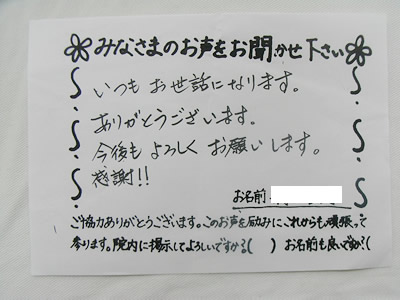 みなさまのお声をお聞かせ下さい
いつもお世話になります。
ありがとうございます。
今後もよろしくお願いします。
感謝!!
お名前
ご協力ありがとうございます。このお声を励みにこれからも頑張って
参ります。院内に掲示してよろしいですか?(　)お名前も良いですか?(